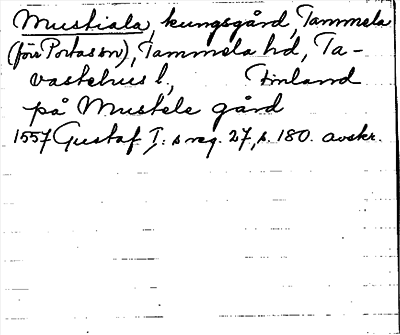 Mustiala, kungsgård, Tammela
(förr Portas sn), Tammela hd, Ta-
vastehus l, Finland
på Mustele gård
1557 Gustaf I:s reg. 27, s. 180. avskr.